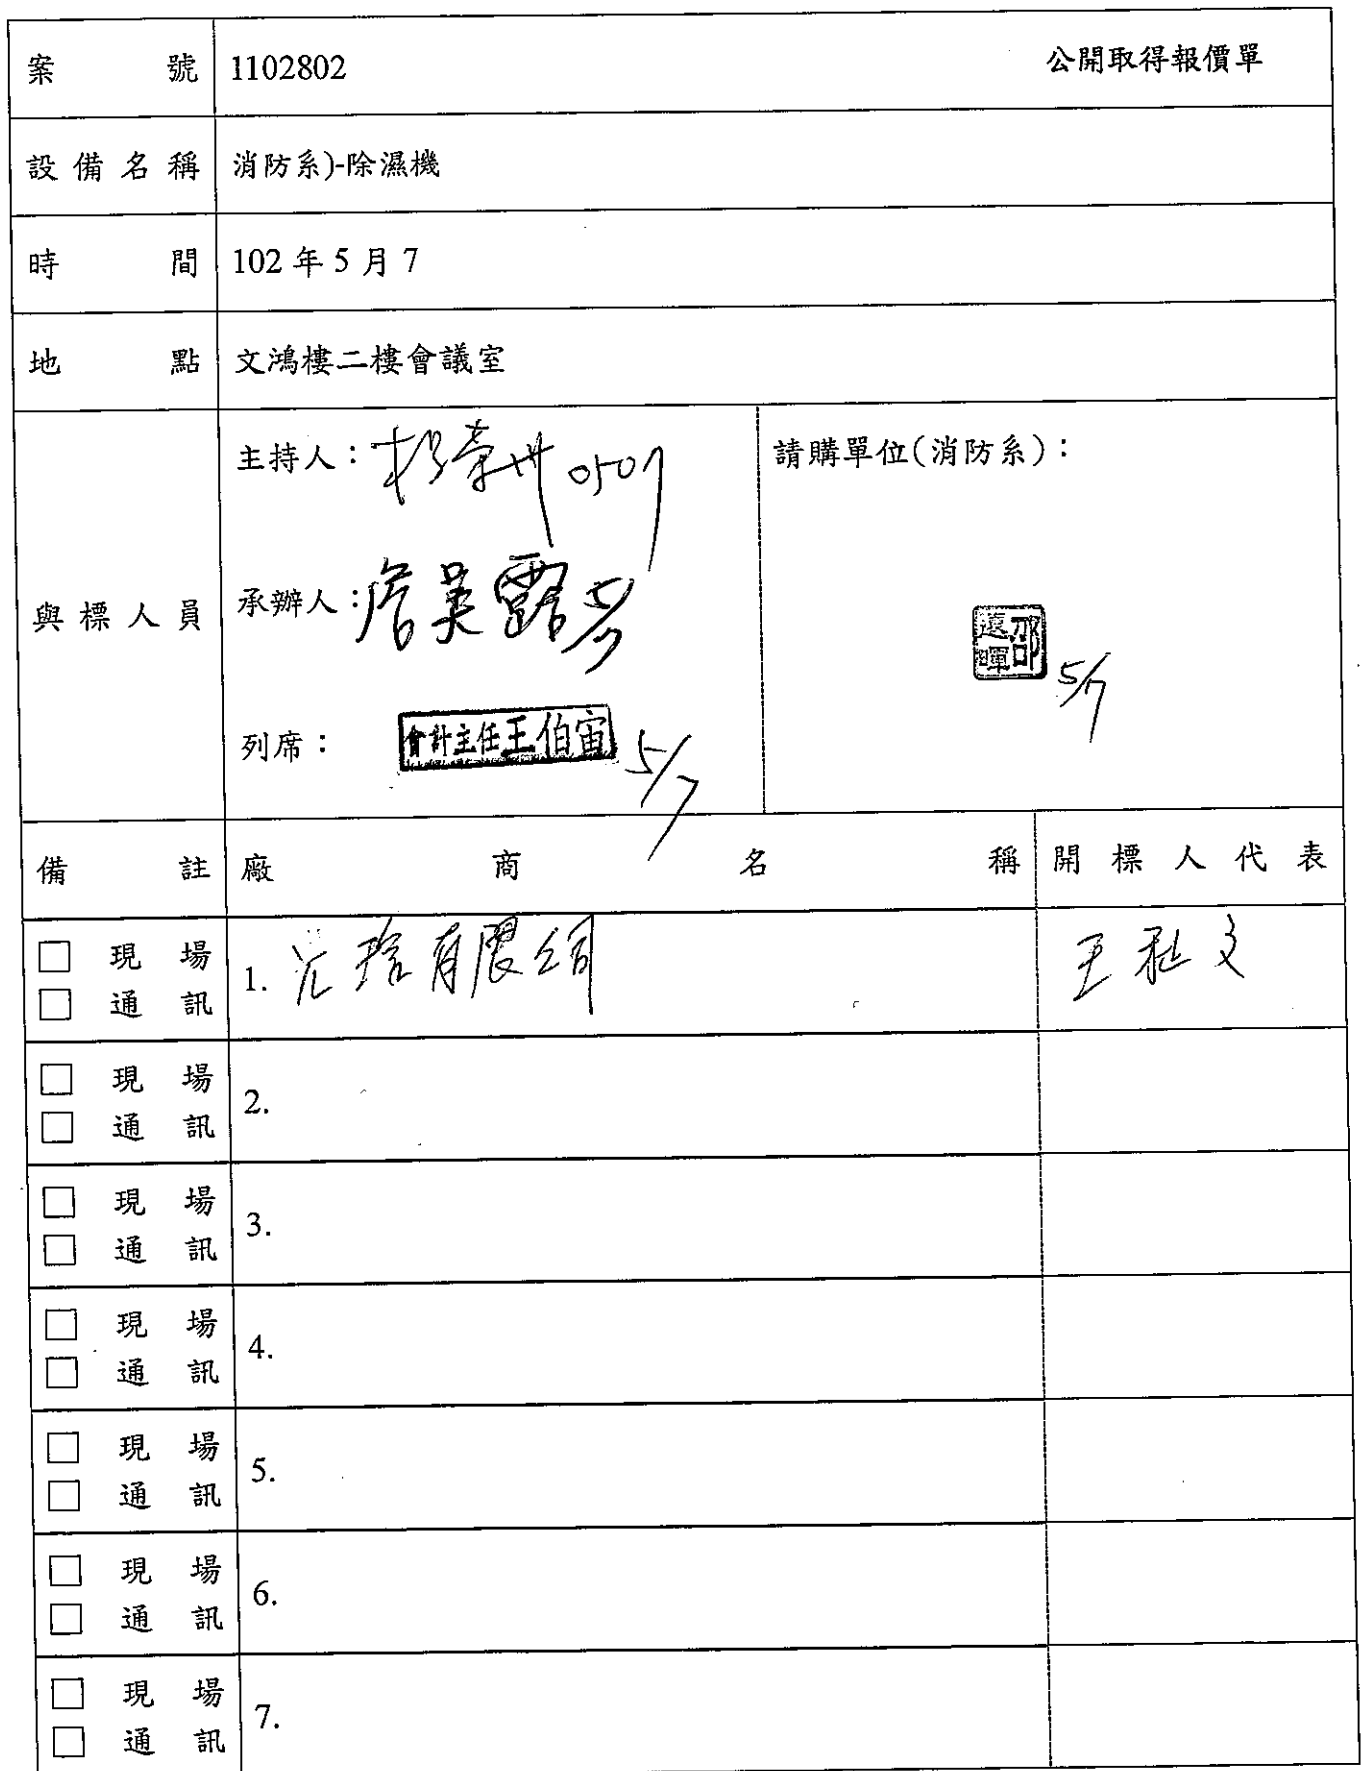 案號 1102802 公開取得報價單
設備名稱 消防系)-除濕機
時間 102 年 5 月 7
地點 文鴻樓二樓會議室
與標人員
主持人：楊 0507
承辦人：詹美露 5/7
列席： 會計主任王伯宙 5/7
請購單位(消防系)：
邵遠暉 5/7
備註 廠商名稱 開標人代表
□ 現場
□ 通訊
1. 有限公司 王 文
□ 現場
□ 通訊
2.
□ 現場
□ 通訊
3.
□ 現場
□ 通訊
4.
□ 現場
□ 通訊
5.
□ 現場
□ 通訊
6.
□ 現場
□ 通訊
7.